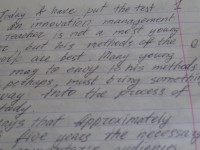 Today I have put the test
An innovation management
teacher is not a most years
, but his methods of the
work are best. Many young
may to envy to his methods
perhaps, must bring somethin
way into the process of
that approximately
five years the necessary